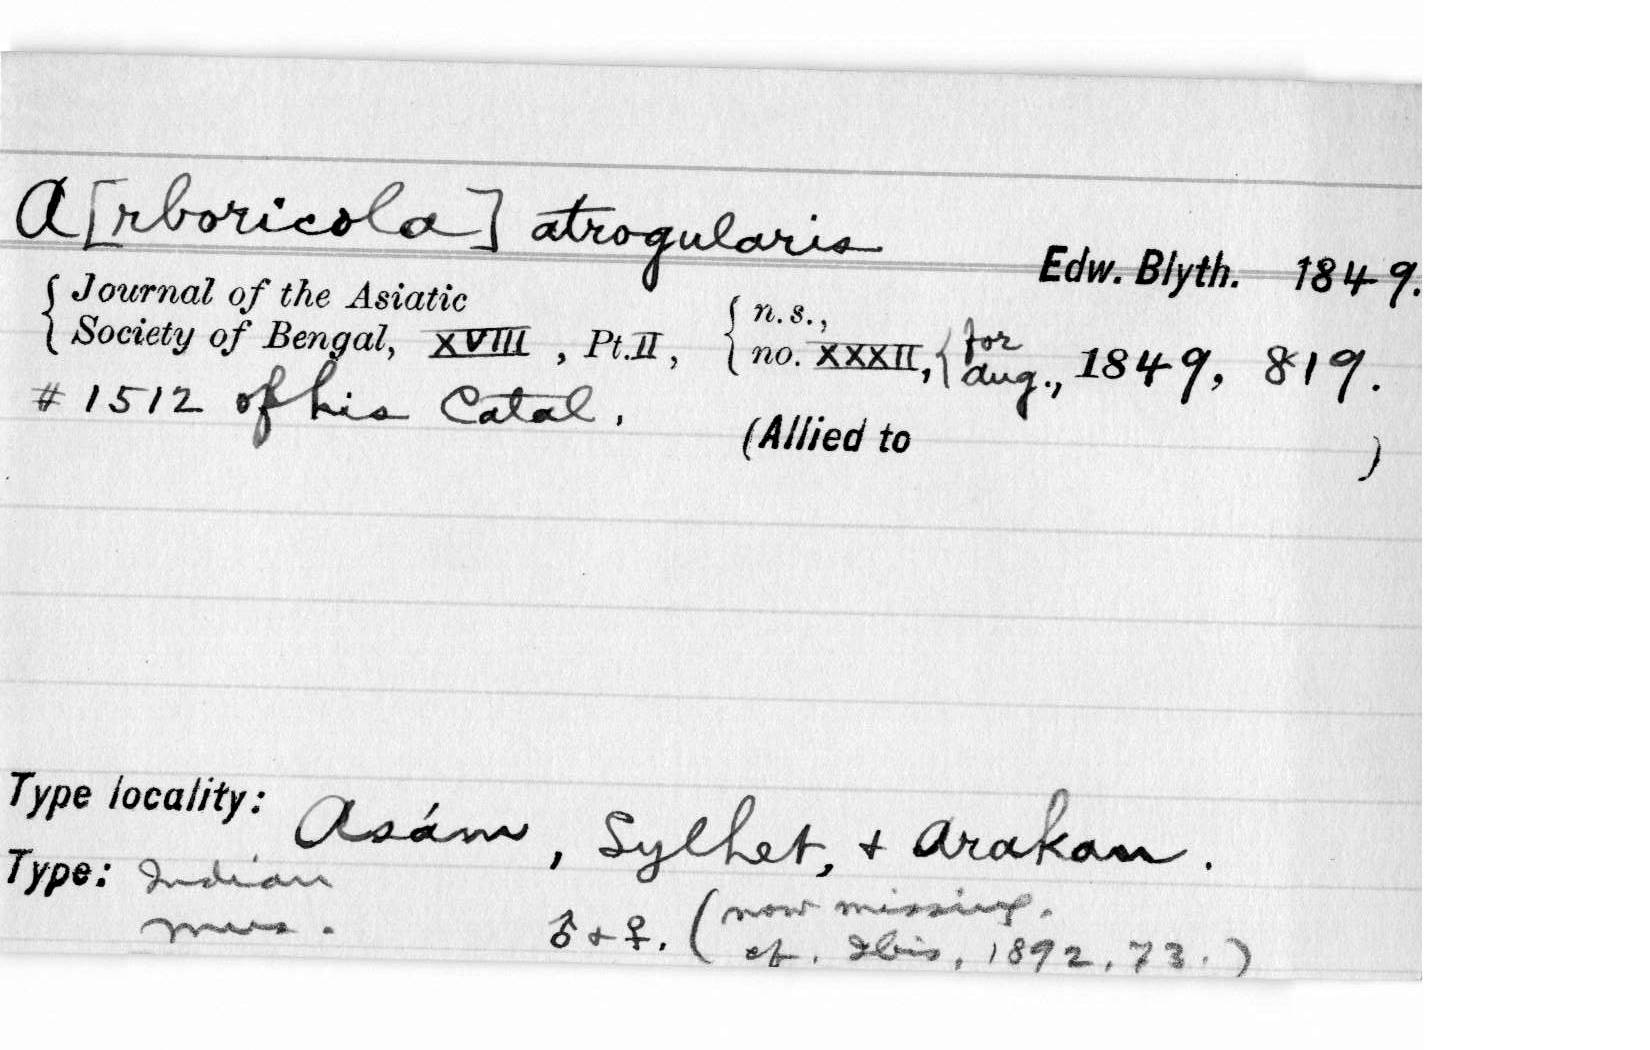 A[rboricola] atrogularis
Edw. Blyth. 1849.
Journal of the Asiatic
Society of Bengal, XVIII, Pt. II, { n.s., no. XXXII, { for Aug., 1849, 819.
# 1512 of his Catal.
(Allied to )
Type locality: Asám, Sylhet, & Arakan.
Type: Indian
Mus. ♂ & ♀. (now missing.
cf. Ibis, 1892, 73.)